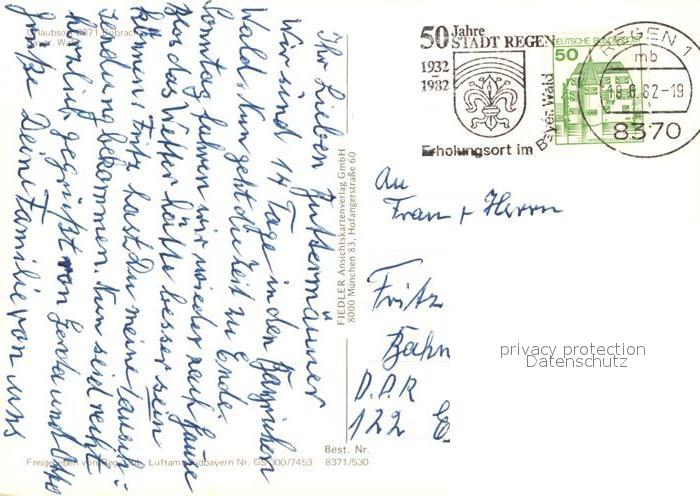 50 Jahre
STADT REGEN
1932
1982
Erholungsort im
Bayer. Wald
DEUTSCHE BUNDESPOST
50
REGEN 1
mb
18.6.82-19
8370
An
Frau + Herrn
Fritz
Bahn
D.D.R
122 E
privacy protection
Datenschutz
Ihr Lieben
Wir sind 14 Tage in den Bayrischen
Wald. Nun geht die Zeit zu Ende.
Sonntag fahren wir wieder nach Hause
Das Wetter hätte besser sein
können. Fritz hast Du meine
Sendung bekommen. Nun seid recht
herzlich gegrüßt von Gerda und
Grüße Deine Familie von uns
FIEDLER Ansichtskartenverlag GmbH
8000 München 83, Hofangerstraße 60
Best. Nr.
Freigegeben von Reg. Luftamt Südbayern Nr. GS 300/7453 8371/530